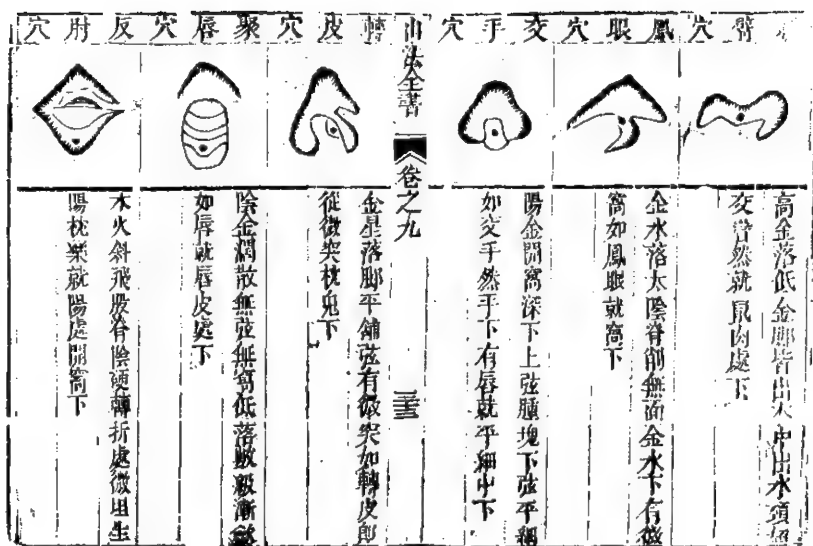 臂穴
高金落低金腳皆出大中出水頭如
交臂然就鼠肉處下
鳳眼穴
金水落太陰脊削無面金水下有微
窩如鳳眼就窩下
交手穴
陽金開窩深下上弦腫塊下弦平
如交手然平下有唇就平細中下
山法全書
卷之九
轉皮穴
金星落腳平鋪弦有微突如轉皮郎
從微突枕鬼下
聚唇穴
陰金濶散無弦無窩低落數級漸
如唇就唇皮處下
反肘穴
木火斜飛股脊陰硬轉折處微坦生
陽枕樂就陽處開窩下